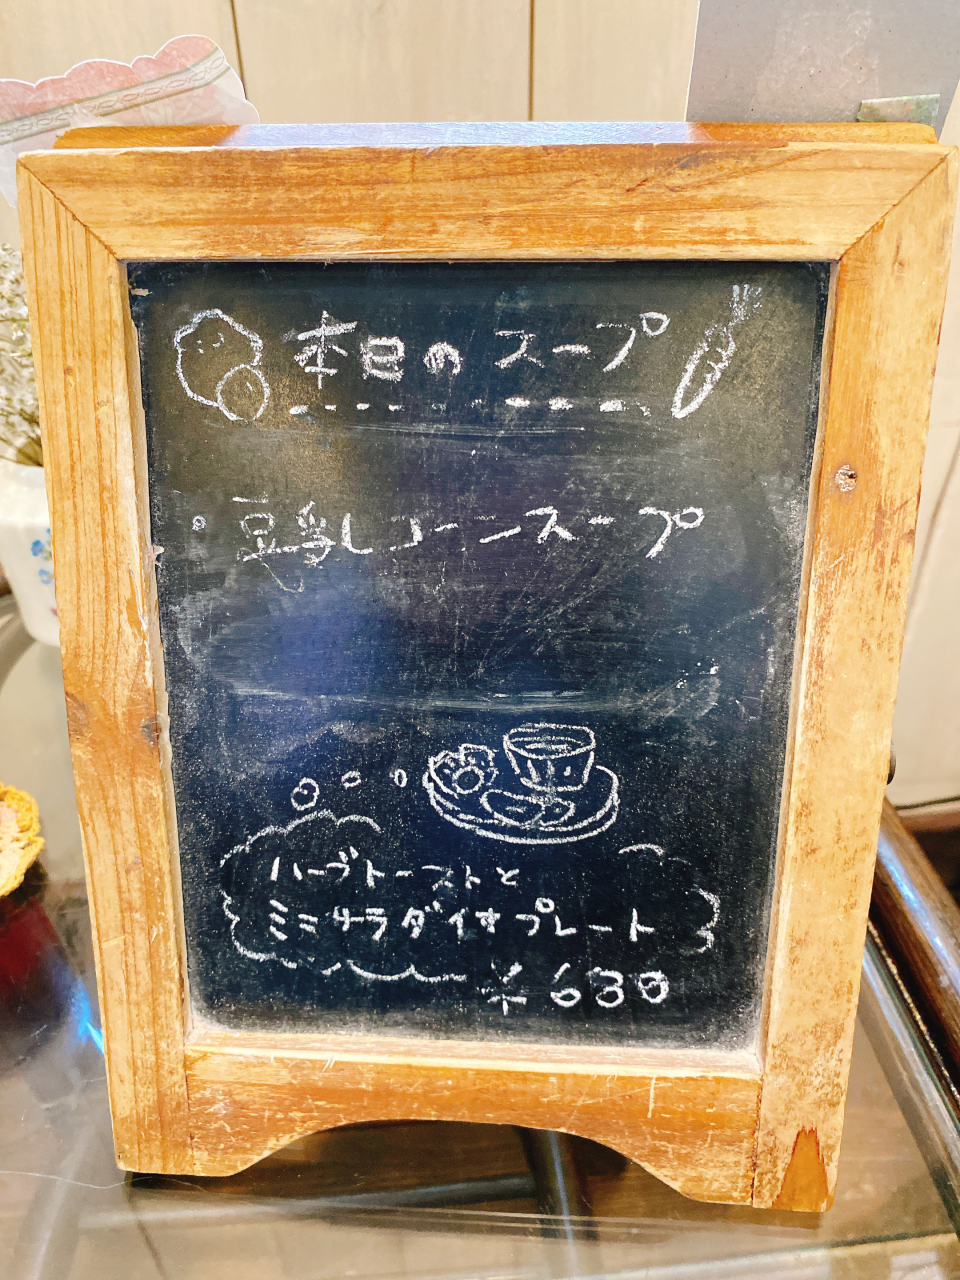 本日のスープ
・豆乳コーンスープ
ハーブトーストと
ミニサラダ付きプレート
¥630